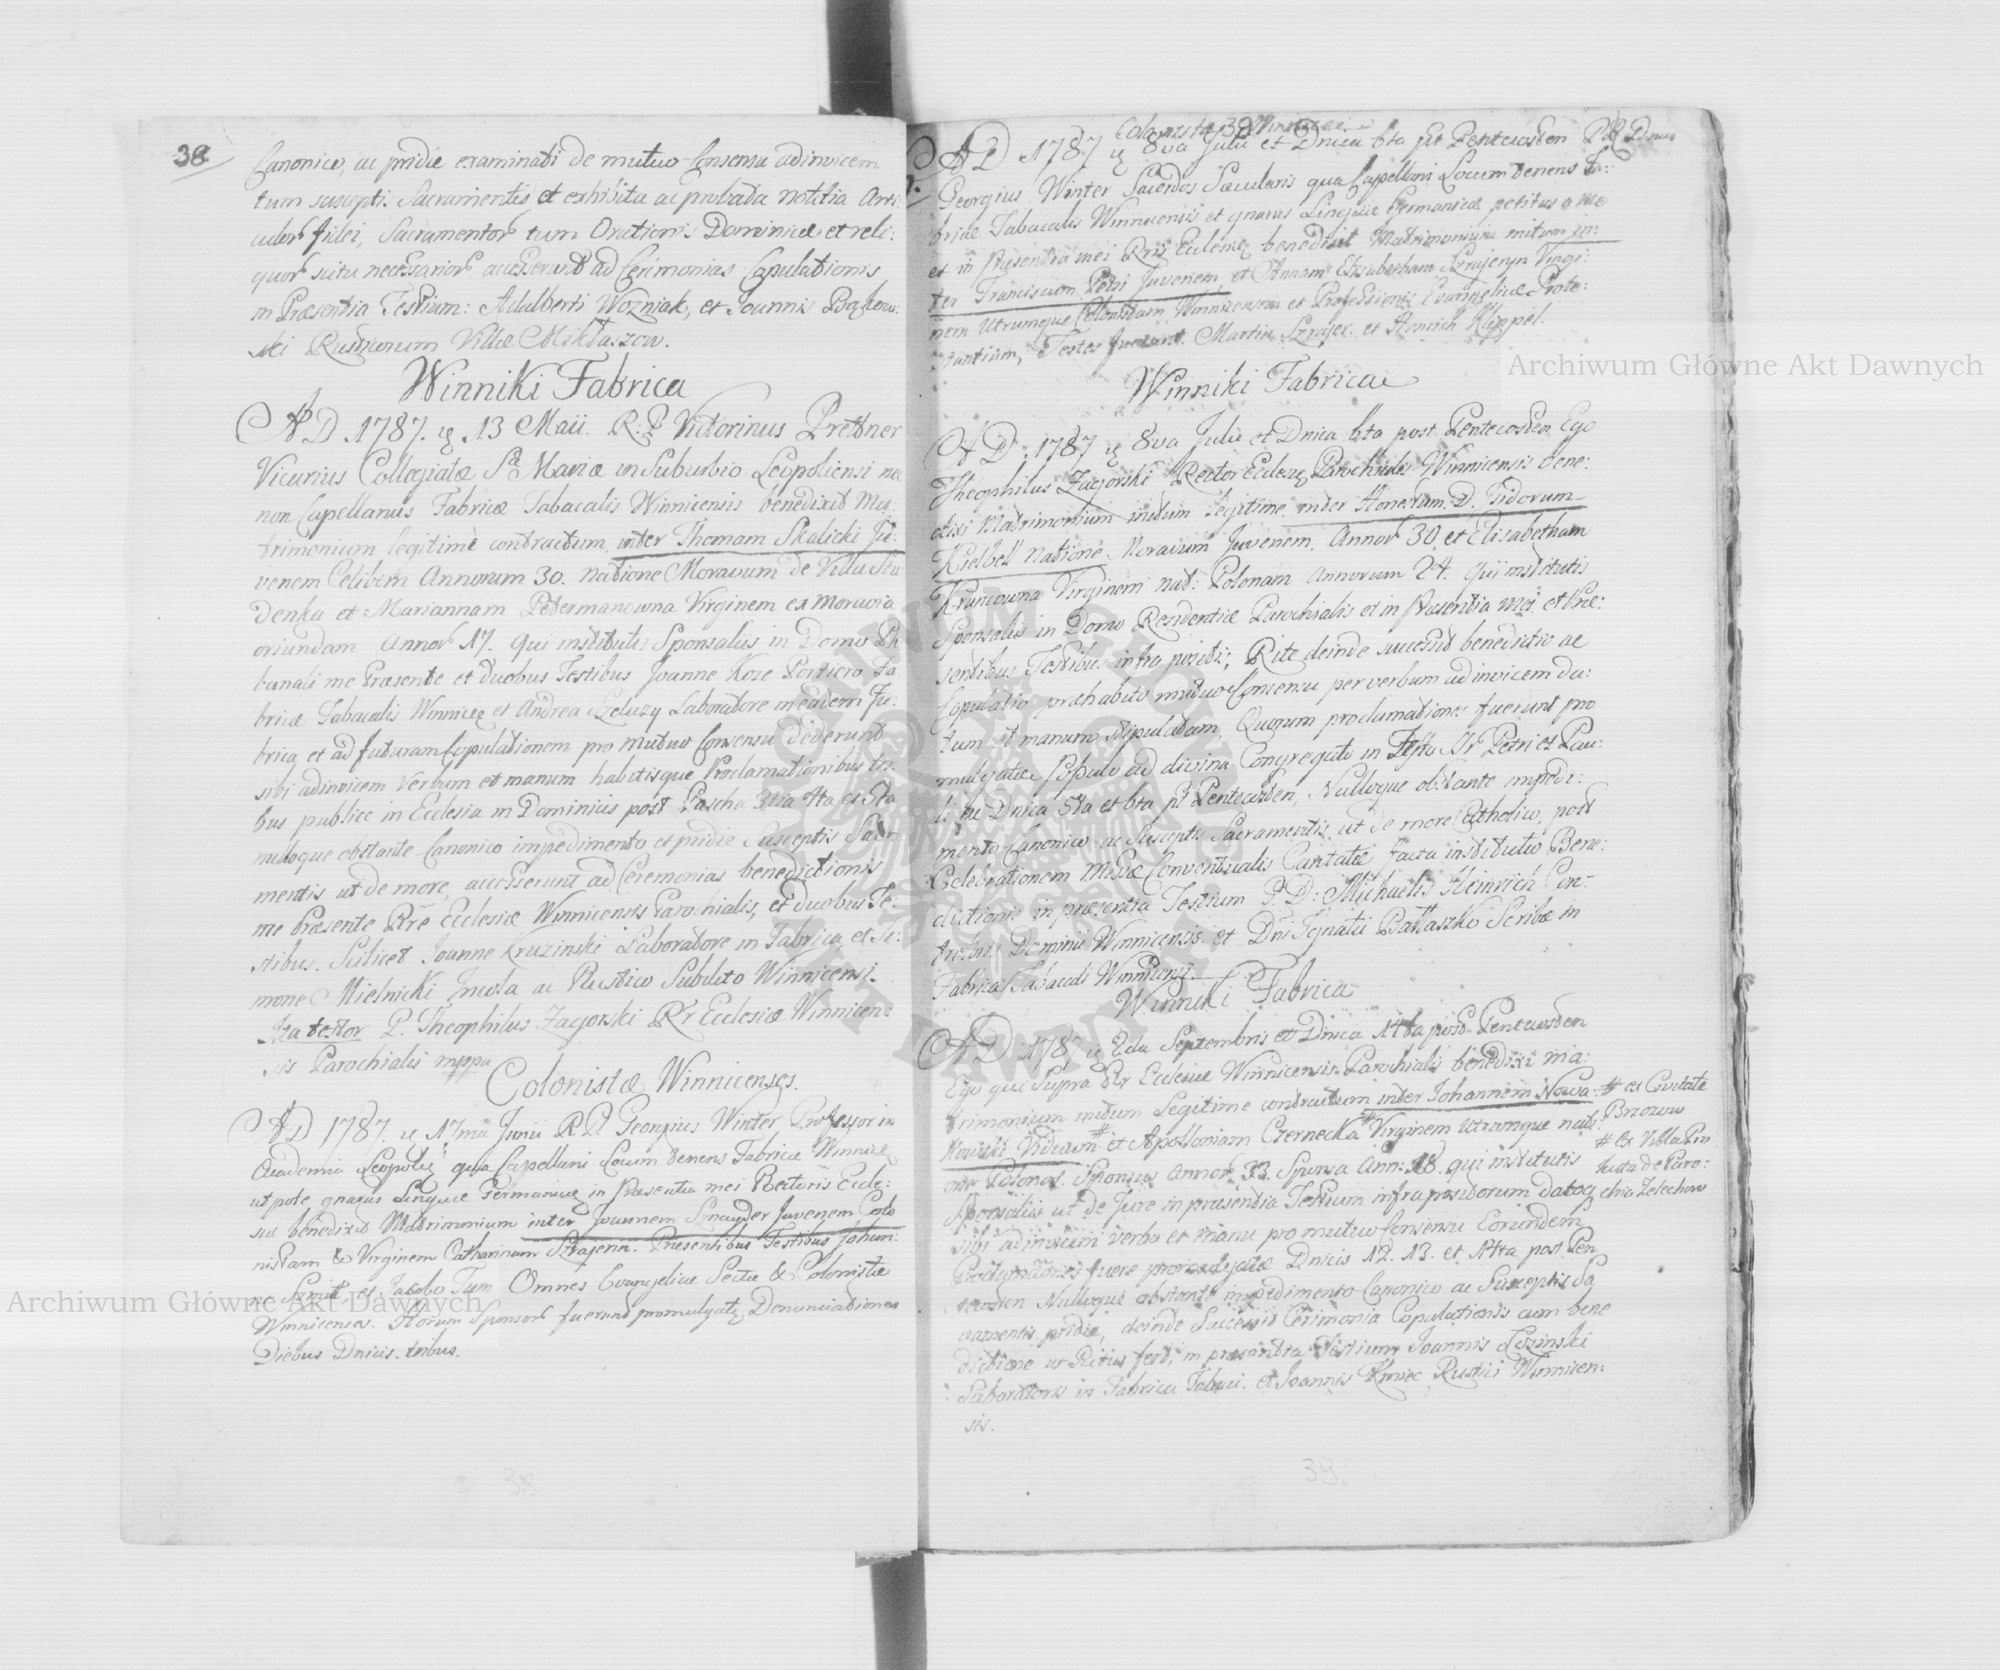 38
Canonico, ac pridie examinati de mutuo Consensu adinvicem
tum suscepti. Sacramentis et exhibita ac probata notitia Arti:
culor fidei, Sacramentor tum Orationis Dominicæ et reli:
quor scitu necessarior accesserunt ad Cerimonias Copulationis
in Præsentia Testium: Adalberti Wozniak, et Joannis
ski Rusticorum Villæ Mikłaszow.
Winniki Fabrica
AD 1787. 13 Maii. R: P Victorinus Prettner
Vicarius Collegiatæ St Mariæ in Suburbio Leopoliensi nec
non Capellanus Fabricæ Tabacalis Winnicensis benedixit Ma:
trimonium legitimè contractum, inter Thomam Skalicki Ju:
venem Celibem Annorum 30. natione Moravum de Villa Stu
denka et Mariannam Petermanowna Virginem ex Moravia
oriundam Annor 17. Qui institutis Sponsaliis in Domo Ple
banali me Præsente et duobus Testibus Joanne Koze Portiero Fa
bricæ Tabacalis Winnicen et Andrea Szeluzy Laboratore in eadem Fa:
brica et ad futuram Copulationem pro mutuo Consensu dederunt
sibi adinvicem Verbum et manum habitisque Proclamationibus tri
bus publice in Ecclesia in Dominicis post Pascha 3tia 4ta et 5ta
nulloque obstante Canonico impedimento et pridie Susceptis Sacra
mentis ut de more, accesserunt ad Ceremonias benedictionis
me Præsente Rre Ecclesiæ Winnicensis Parochialis, et duobus Te:
stibus. Scilicet Joanne Kruzinski Laboratore in Fabrica et Si:
mone Mielnicki Incola ac Rustico Subdito Winnicensi.
Ita testor P. Theophilus Zagorski Rr Ecclesiæ Winnicen:
sis Parochialis mppa
Colonistæ Winnicenses.
AD 1787. 17ma Junii R.P. Georgius Winter Professor in
Academia Leopoli qua Capellani Locum tenens Fabricæ Winnice
ut pote gnarus Linguæ Germanicæ in Præsentia mei Rectoris Eccle:
siæ benedixit Matrimonium inter Joannem Sznayder Juvenem Colo
nistam & Virginem Catharinam Sztrajerin. Præsentibus Testibus Johan:
ne Szmit, et Jacobo Tum Omnes Evangelicæ Sectæ & Colonistæ
Winnicenses. Horum Sponsor fuerunt promulgatæ Denunciationes
Diebus Dnicis. tribus.
Colonistæ 39 Winnicen
AD 1787 8va Julii et Dnica 6ta pt Pentecosten Dnus
Georgius Winter Sacerdos Sæcularis qua Capellani Locum tenens Fa:
bricæ Tabacalis Winnicensis et gnarus Linguæ Germanicæ petitus a me
et in Præsentia mei Rris Ecclesiæ benedixit Matrimonium initum in:
ter Franciscum Petri Juvenem, et Annam Elisabetham Sztrajeryn Virgi:
nem Utrumque Colonistam Winnicensem et Professionis Evangelicæ Prote:
stantium, Testes fuerant. Martin Sztrajer. et Henrich Klippel.
Winniki Fabricæ
AD. 1787 8va Julii et Dnica 6ta post Pentecosten Ego
Theophilus Zagorski Rector Ecclesiæ Parochialis Winnicensis bene:
dixi Matrimonium initum legitime inter Honestum D. Fidorum
Kielbell natione Moravum Juvenem. Annor 30 et Elisabetham
Krancowna Virginem nat: Polonam Annorum 24. Qui institutis
Sponsaliis in Domo Residentiæ Parochialis et in Præsentia mei et Præ:
sentibus Testibus infra positis, Rite deinde successit benedictio ac
Copulatio præhabito mutuo Consensu per verbum ad invicem da:
tum et manum stipulatam, Quorum proclamationes fuerunt pro
mulgatæ Populo ad divina Congregato in Festo Sr Petri et Pau:
li et Dnica 5ta et 6ta pt Pentecosten, Nulloque obstante impedi:
mento Canonico ac Susceptis Sacramentis ut de more Catholico, post
Celebrationem Missæ Conventualis Cantatæ facta institutio Bene:
dictionis in præsentia Testium P.D: Michaelis Heinrich Con-
Dominii Winnicensis et Dni Ignatii Bałłaszki Scribæ in
Fabrica Tabacali Winnicensi.
Winniki Fabrica
AD. 1787 2da Septembris et Dnica 14ta post Pentecosten
Ego qui Supra Rr Ecclesiæ Winnicensis Parochialis benedixi ma:
trimonium initum Legitime contractum inter Johannem Nowa: # ex Civitate
kowski Viduum # et Apolloniam Czernecka # Virginem utrumque nati: Brzozow
one Polonos. Sponsus Annor 33 Sponsa Ann: 18. qui institutis # Ex Villa
Sponsaliis ut de Jure in præsentia Testium infrapositorum datoq Juxta de Paro:
sibi adinvicem verbo et manu pro mutuo Consensu Eorundem chia Zelechow
Proclamationes fuere promulgatæ Dnicis 12. 13. et 14ta post Pen
tecosten Nulloque obstante impedimento Canonico ac Susceptis Sa
cramentis pridie, deinde Successit Cerimonia Copulationis cum bene
dictione ut Ritus fert, in præsentia Testium Joannis Lesinski
Laboratoris in Fabrica Tabaci. et Joannis Kmiec Rustici Winnicen:
sis.
38
39.
Archiwum Główne Akt Dawnych
Archiwum Główne Akt Dawnych